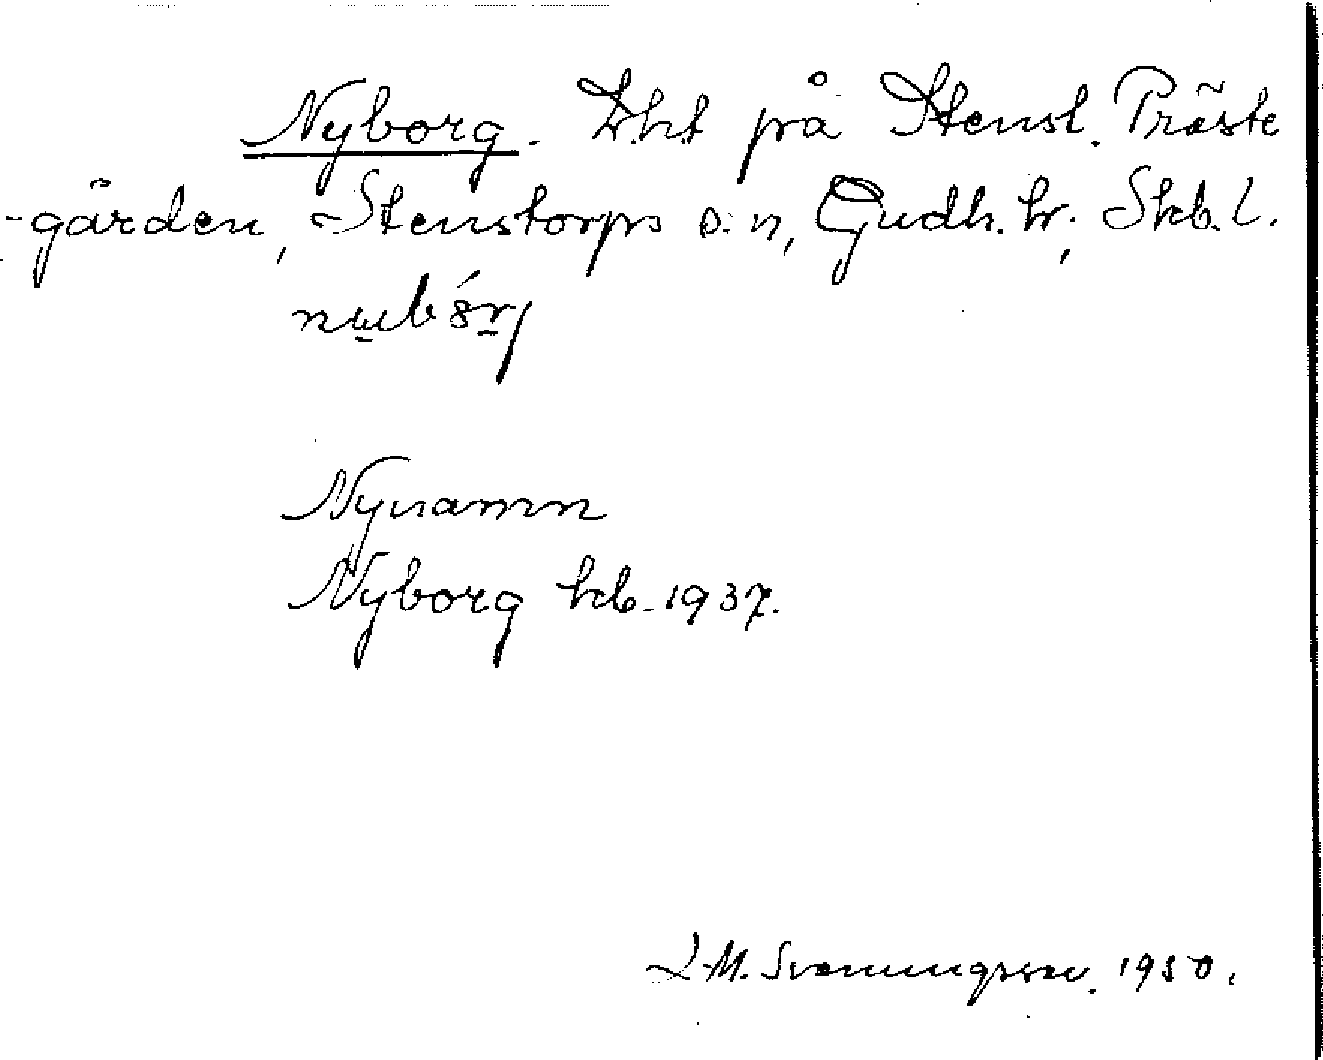 Nyborg. Lht på Stenst. Präste
-gården, Stenstorps sn, Gudh. hr, Skb. l.
Nynamn
Nyborg kb. 1937.
L. M. Svenungsson. 1950.